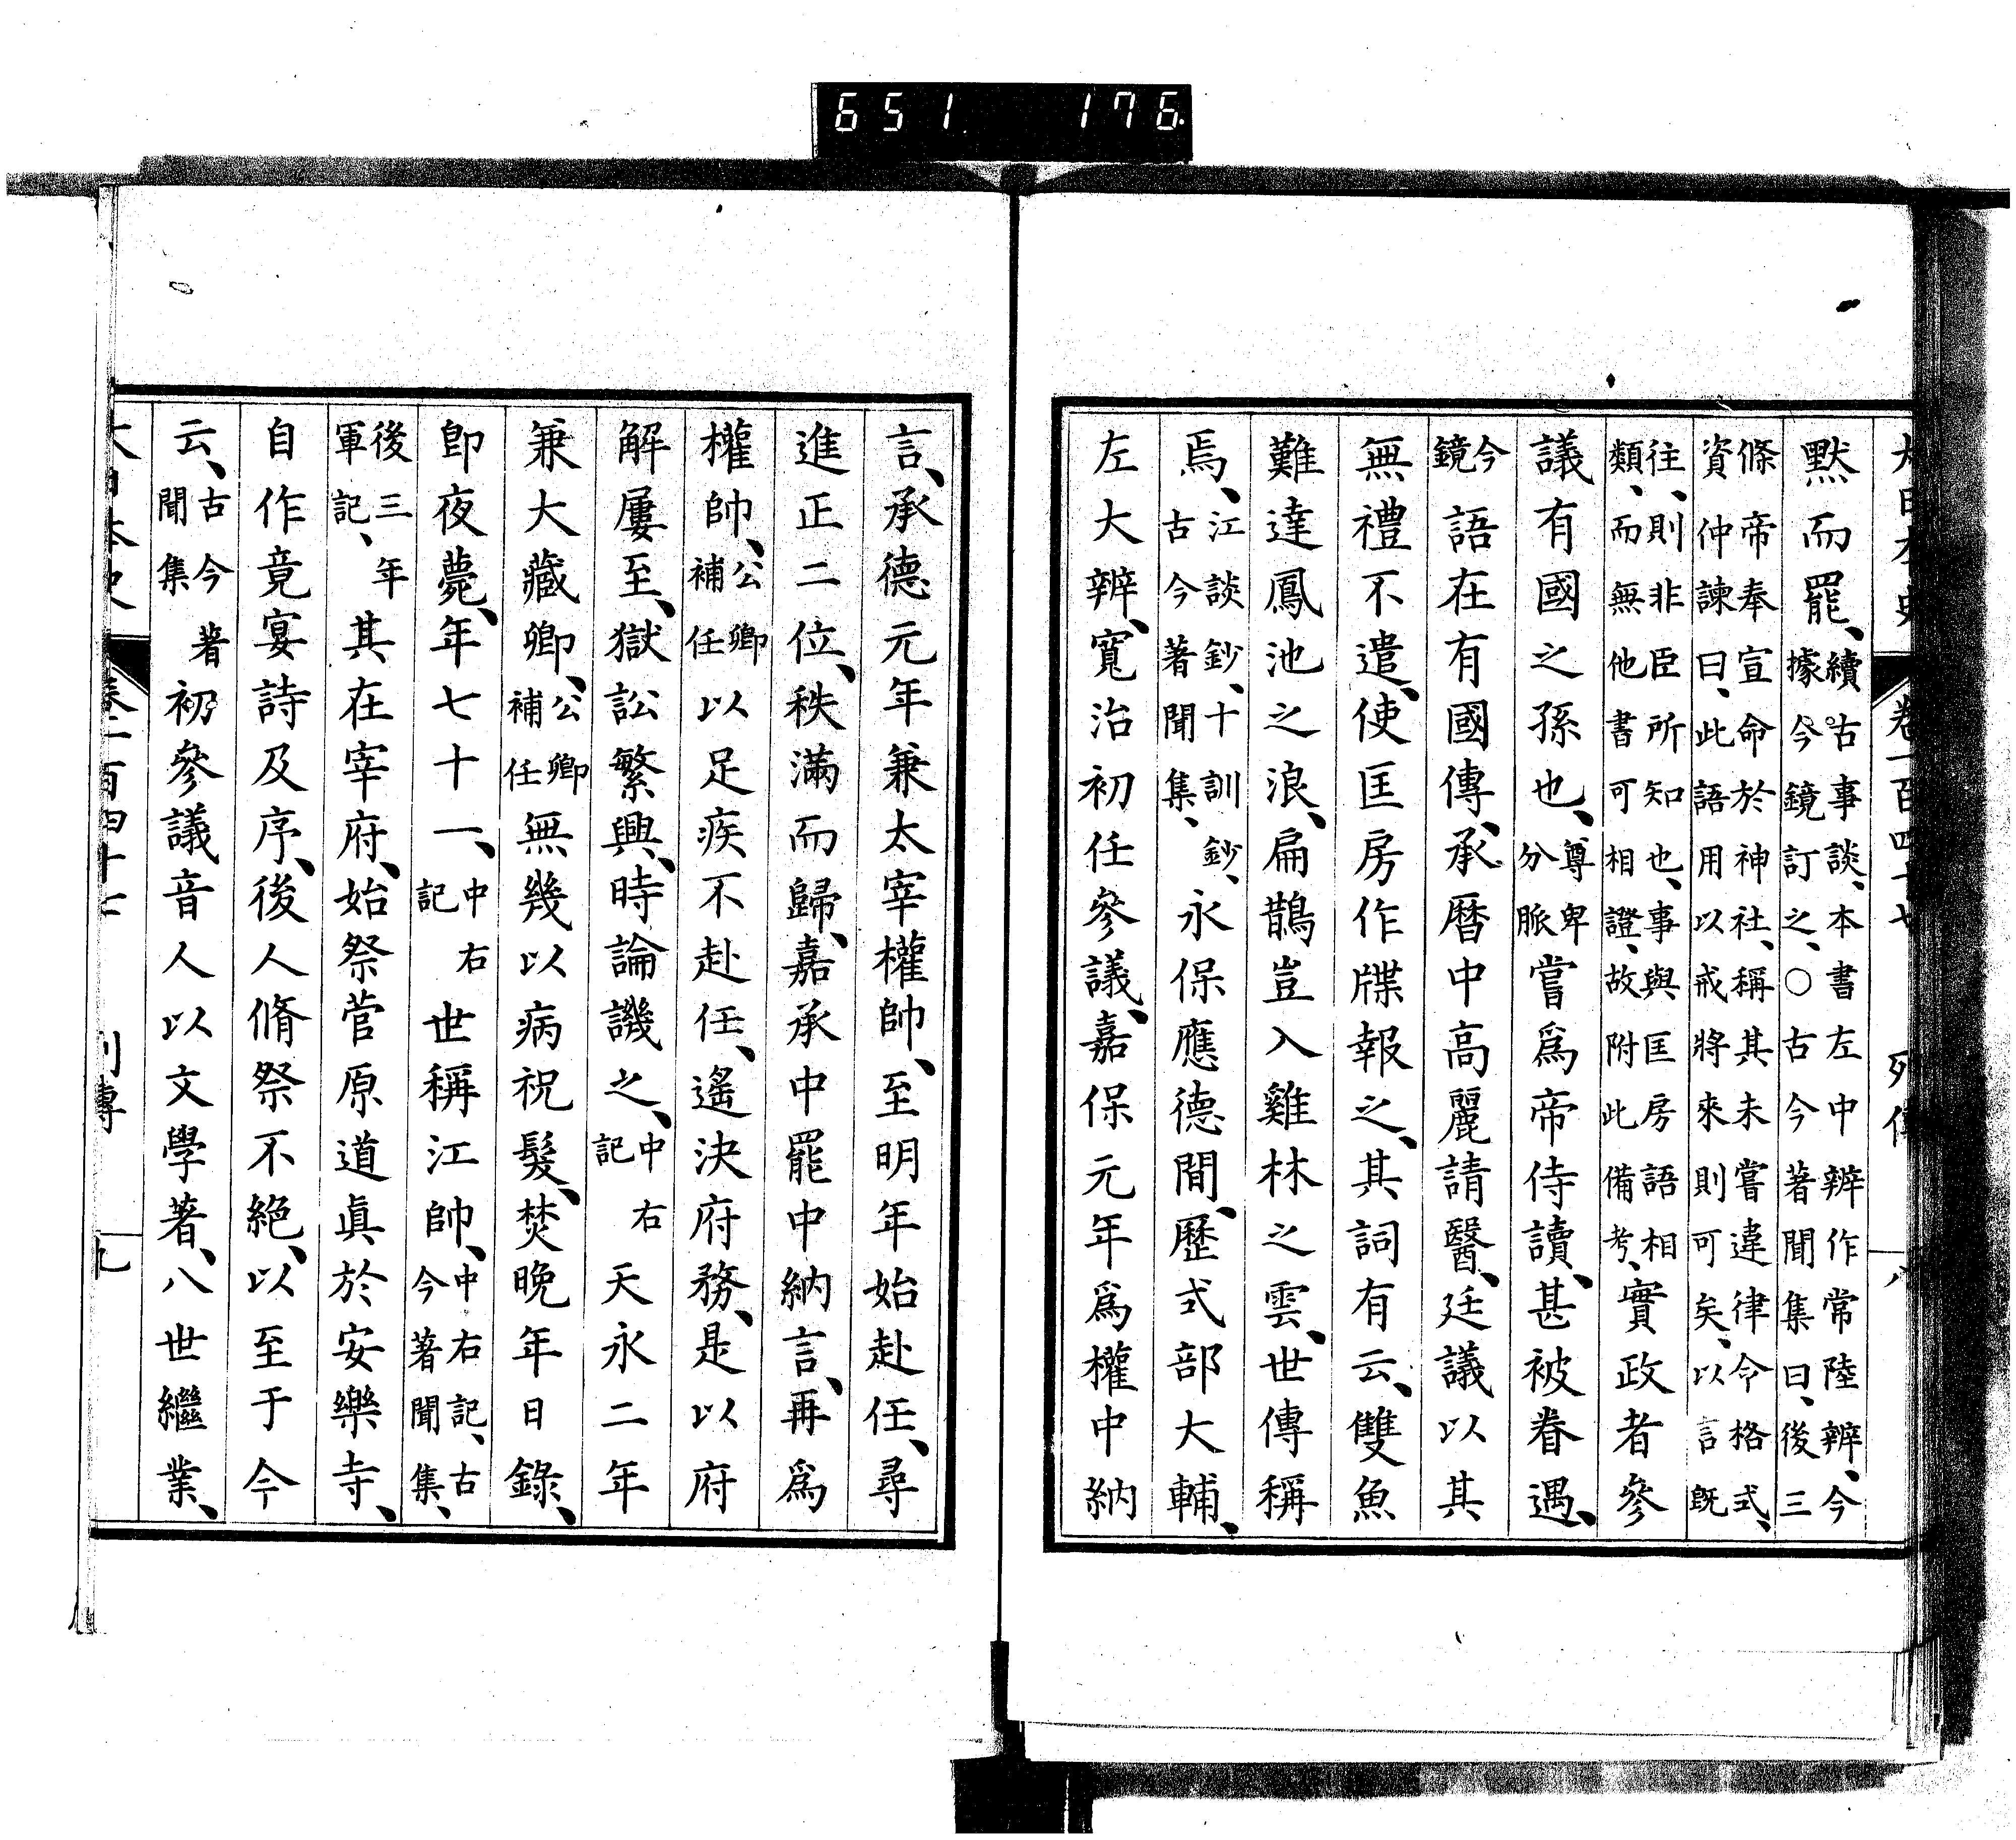 大日本史 卷一百四十七 列傳 八
默而罷、續古事談、本書左中辨作常陸辨、今據今鏡訂之、○古今著聞集曰、後三
條帝奉宣命於神社、稱其未嘗違律令格式、資仲諫曰、此語用以戒將來則可矣、以言既
往、則非臣所知也、事與匡房語相類、而無他書可相證、故附此備考、實政者參
議有國之孫也、尊卑分脈嘗爲帝侍讀、甚被眷遇、
今鏡語在有國傳、承曆中高麗請醫、廷議以其
無禮不遣、使匡房作牒報之、其詞有云、雙魚
難達鳳池之浪、扁鵲豈入雞林之雲、世傳稱
焉、江談鈔、十訓鈔、古今著聞集、永保應德間、歷式部大輔、
左大辨、寬治初任參議、嘉保元年爲權中納
言、承德元年兼太宰權帥、至明年始赴任、尋
進正二位、秩滿而歸、嘉承中罷中納言、再爲
權帥、公卿補任以足疾不赴任、遙決府務、是以府
解屢至、獄訟繁興、時論譏之、中右記天永二年
兼大藏卿、公卿補任無幾以病祝髮、焚晚年日錄、
卽夜薨、年七十一、中右記世稱江帥、中右記、古今著聞集、
後三年軍記、其在宰府、始祭菅原道眞於安樂寺、
自作竟宴詩及序、後人脩祭不絕、以至于今
云、古今著聞集初參議音人以文學著、八世繼業、
大日本史 卷一百四十七 列傳 九
651 176